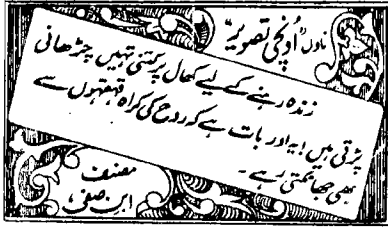 ناول "اونچی تصویر"
زندہ رہنے کے لیے کھال پر کتنی تہیں چڑھانی
پڑتی ہیں! یہ اور بات ہے کہ روح کی کراہ قہقہوں سے
بھی جھانکتی رہے۔
مصنف
ابن صفی